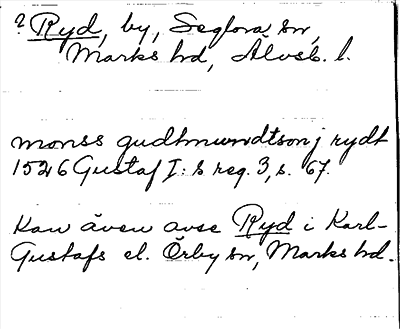 ? Ryd, by, Seglora sn,
Marks hd, Älvsb. l.
monss gudhmundtson j rydt
1526 Gustaf I:s reg. 3, s. 67.
Kan även avse Ryd i Karl-
Gustafs el. Örby sn, Marks hd.